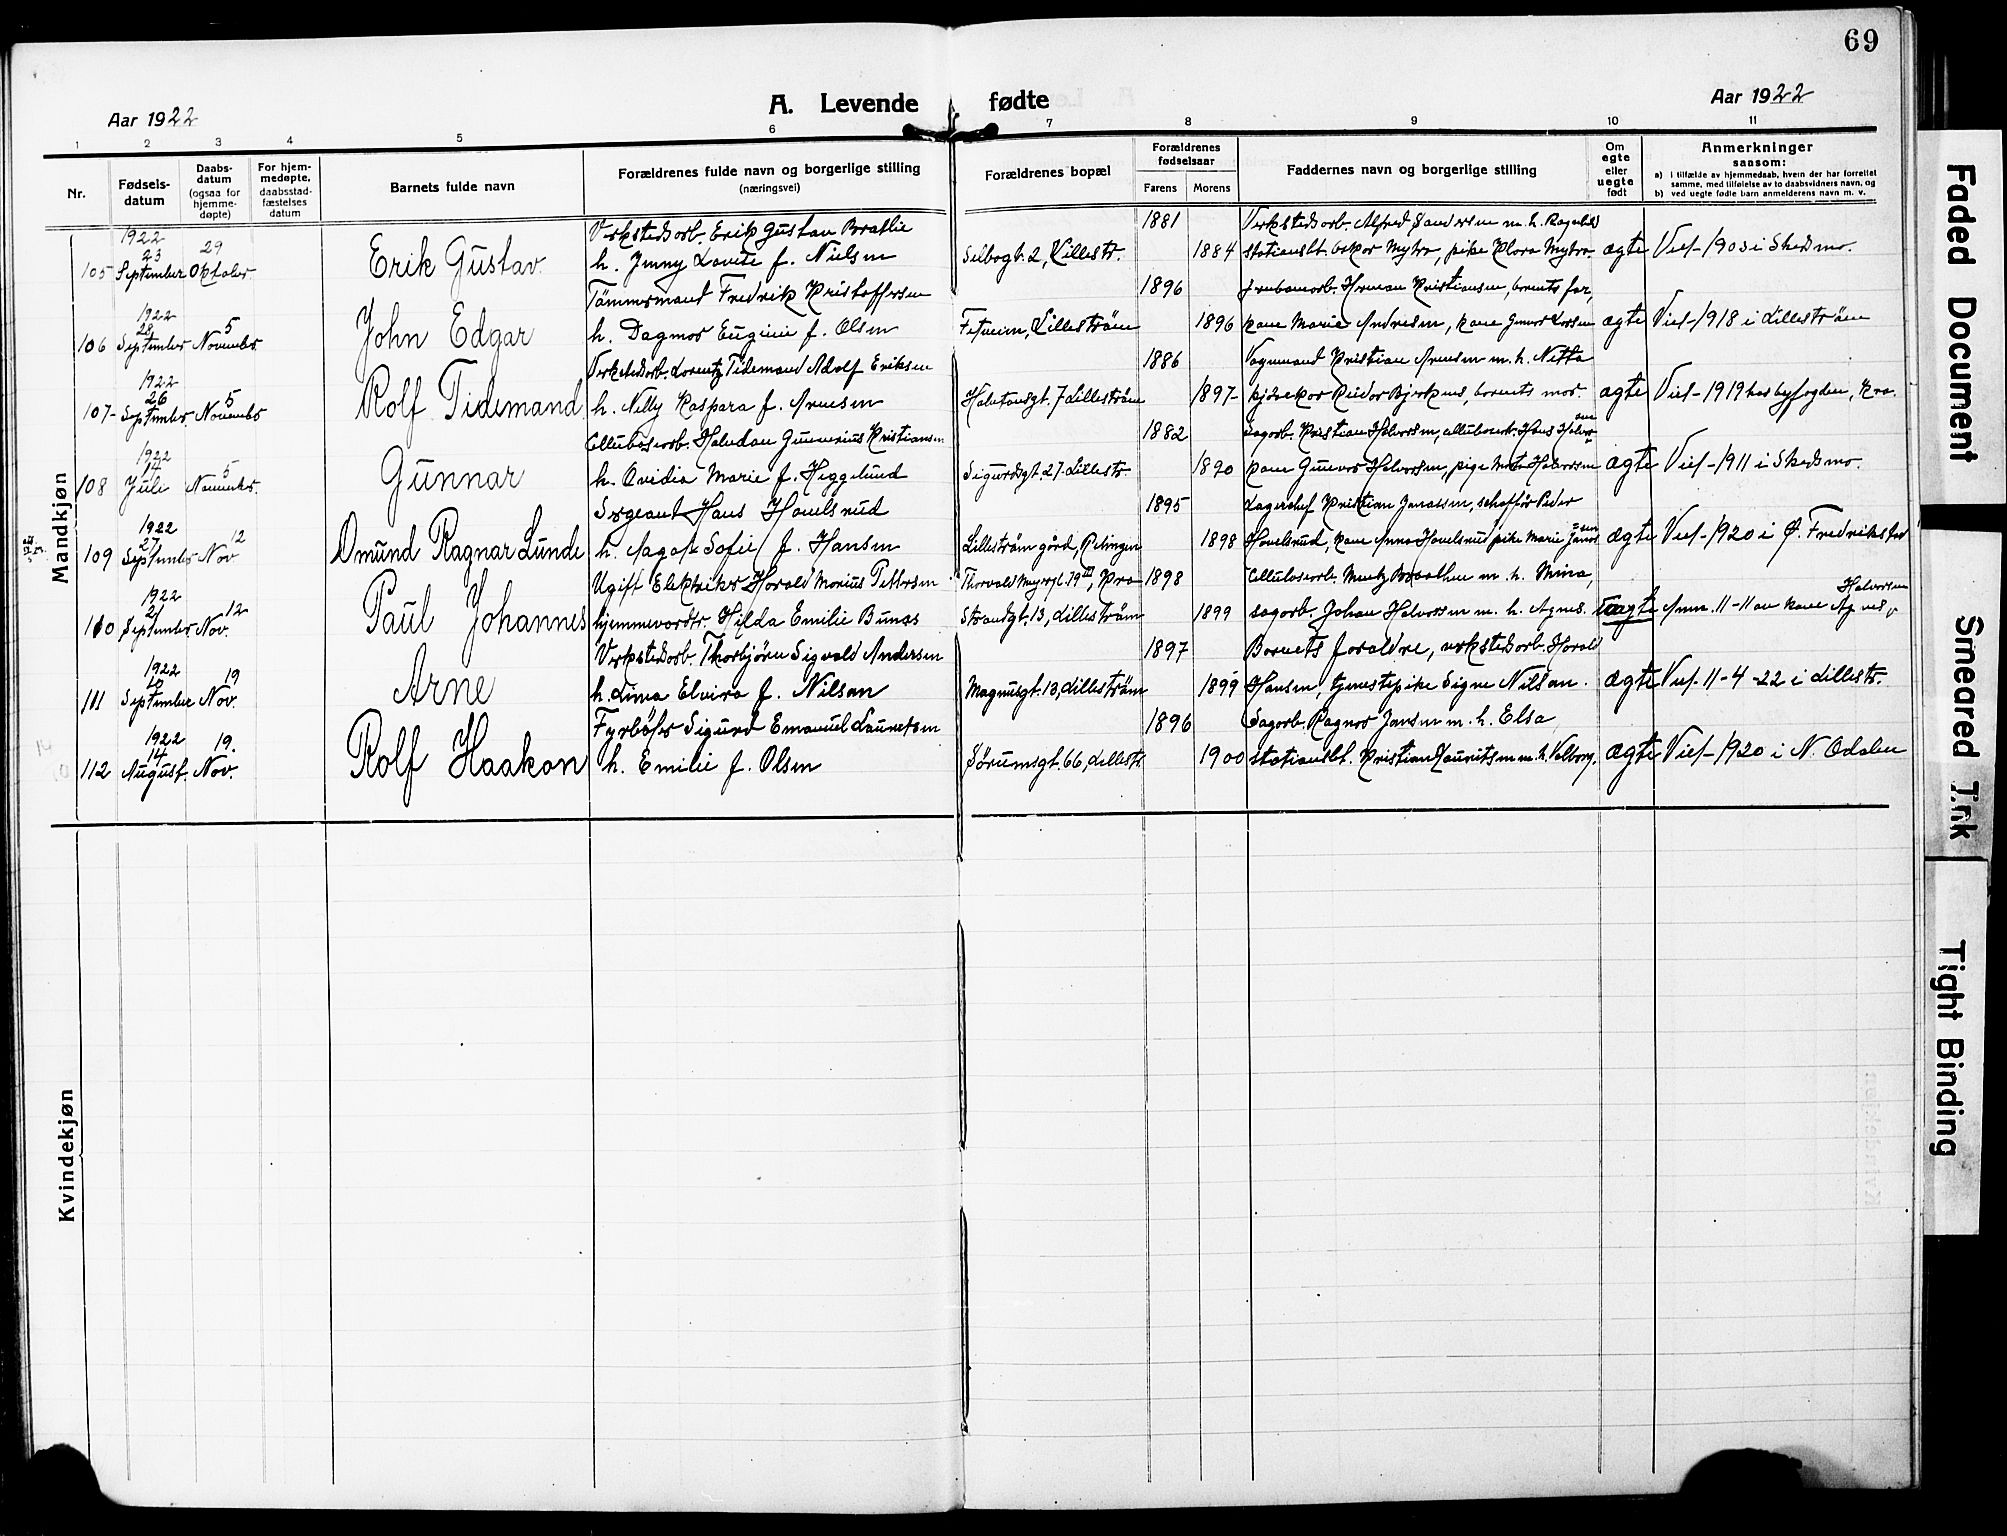 69
Aar 1922
A. Levende fødte
Aar 1922
1 2 3 4 5 6 7 8 9 10 11
Nr.
Fødsels-
datum
Daabs-
datum
(ogsaa for
hjemme-
døpte)
For hjem-
medøpte,
daabsstad-
fæstelses
datum
Barnets fulde navn
Forældrenes fulde navn og borgerlige stilling
(næringsvei)
Forældrenes bopæl
Forældrenes
fødselsaar
Farens Morens
Faddernes navn og borgerlige stilling
Om
egte
eller
uegte
født
Anmerkninger
saasom:
a) i tilfælde av hjemmedaab, hvem der har forrettet
samme, med tilføielse av to daabsvidners navn, og
b) ved uegte fødte barn anmelderens navn m. v.
Mandkjøn
1922
105 23 September 29 Oktober
Erik Gustav
Verkstedsarb. Erik Gustav Bratlie
h. Jenny Lovise f. Nielsen
2, Lillestr.
1881
1884
Verkstedsarb. Alfred Sandersen m. h. Ragnhild
Myhra, pike Klara Myhra
ægte
Viet 1903 i Skedsmo.
1922
106 28 September 5 November
John Edgar
Tömmermand Fredrik Kristoffersen
h. Dagmar Eugenie f. Olsen
Fetveien, Lillestrøm
1896
1896
Herman Kristiansen, barnets far,
kone Marie Andresen, kone Gunvor Larsen
ægte
Viet 1918 i Lillestrøm
1922
107 26 September 5 November
Rolf Tidemand
Verkstedsarb. Lorentz Tidemand Adolf Eriksen
h. Nelly Kaspara f. Arnesen
7 Lillestrøm
1886
1897
Vognmand Kristian Arnesen m. h. Netta
Reidar Bjerknes, barnets mor.
ægte
Viet 1919 hos byfogden, Kra.
1922
108 14 Juli 5 November.
Gunnar
Cellulosearb. Halvdan Gunnerius Kristiansen
h. Ovidia Marie f. Heggelund
Sigurdsgt. 27 Lillestr.
1882
1890
Sagarb. Kristian Halvorsen, Hans Halvorsen
kone Gunvor Halvorsen, pige Halvorsen
ægte
Viet 1911 i Skedsmo.
1922
109 27 September 12 Nov
Omund Ragnar Lunde
Sergeant Hans Hovelsrud
h. Aagot Sofie f. Hansen
Lillestrøm gård, Rælingen
1895
1898
Lagerchef Kristian Jonassen, Peder
Hovelsrud, kone Anna Hovelsrud pike Marie
ægte
Viet 1920 i Ø. Fredrikstad
1922
110 21 September 12 Nov.
Paul Johannes
Ugift Elektriker Harald Marius Pettersen
hjemmevør. dtr. Hilda Emilie
Thorvald Meyersgt. 79, Kra
Strandgt. 13, Lillestrøm
1898
1899
Cellulosearb. Braathen m. h. Mina,
sagarb. Johan Halvorsen m. h. Agnes.
uægte
Anm. 11-11 av kone Agnes Halvorsen
1922
111 September 19 Nov.
Arne
Verkstedsarb. Thorbjörn Sigvald Andersen
h. Elvira f. Nilsen
Magnusgt. 13, Lillestrøm
1897
1899
Barnets foreldre, verkstedsarb. Harald
Hansen, tjenestepike Signe Nilsen.
ægte
Viet 11-4-22 i Lillestr.
1922
112 14 August. 19. Nov.
Rolf Haakon
Fyrbøter Sigurd Emanuel Lauritsen
h. Emilie f. Olsen
Sørumsgt. 66, Lillestr.
1896
1900
Sagarb. Ragnar Jansen m. h. Elsa
Kristian Lauritsen m. h. Valborg.
ægte
Viet 1920 i N. Odalen
Kvindekjøn
Faded Document
Smeared Ink
Tight Binding